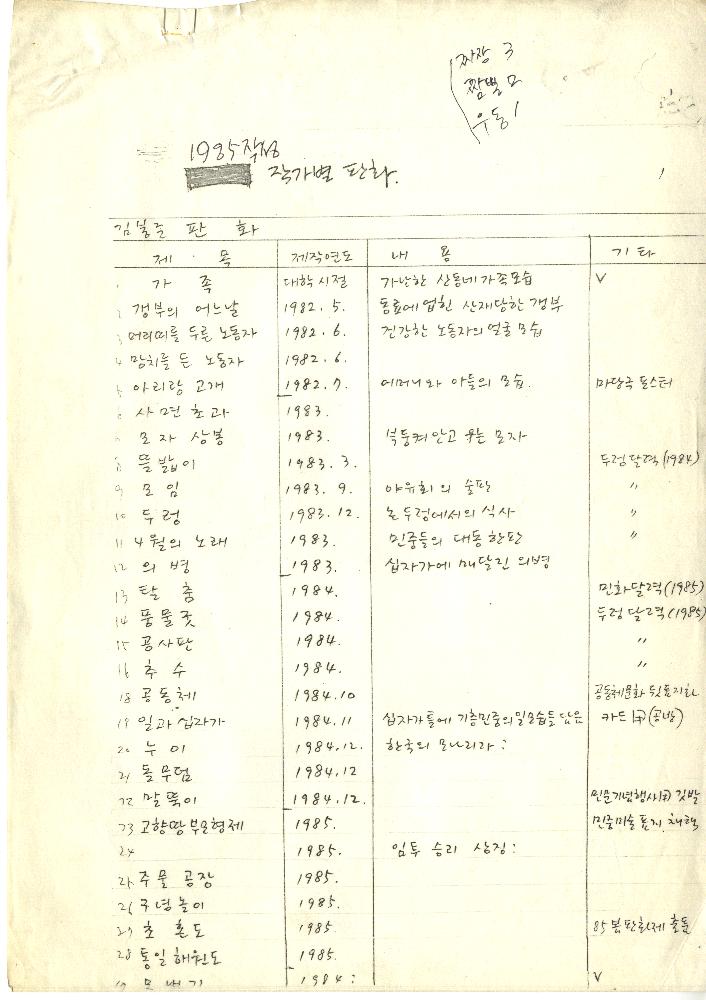 짜장 3
짬뽕 2
우동 1
1985 작성
작가별 판화.
김봉준 판 화
제 목 제작연도 내 용 기 타
1 가 족 대학시절 가난한 산동네 가족모습 V
2 갱부의 어느날 1982. 5. 동료에 업힌 산재당한 갱부
3 머리띠를 두른 노동자 1982. 6. 건강한 노동자의 얼굴 모습
4 망치를 든 노동자 1982. 6.
5 아리랑 고개 1982. 7. 어머니와 아들의 모습. 마당극 포스터
6 사면초과 1983.
7 모자 상봉 1983. 부둥켜안고 우는 모자
8 뜰밟이 1983. 3. 두렁달력(1984)
9 모 임 1983. 9. 야유회의 술판 〃
10 두 렁 1983. 12. 논두렁에서의 식사 〃
11 4월의 노래 1983. 민중들의 대동한판 〃
12 의 병 1983. 십자가에 매달린 의병
13 탈 춤 1984. 민화달력(1985)
14 풍물굿 1984. 두렁달력(1985)
15 공사판 1984. 〃
16 추 수 1984. 〃
18 공동체 1984. 10 공동체문화 뒷표지화
19 일과 십자가 1984. 11 십자가틀에 기층민중의 일모습들 담은 카드
20 누 이 1984. 12. 한국의 모나리자:
21 돌무덤 1984. 12
22 말뚝이 1984. 12. 깃발
23 고향땅 부모형제 1985. 민중미술 표지. 채색
24 1985. 임투 승리 상징:
25 주물 공장 1985.
26 구녕놀이 1985.
27 초 혼 도 1985. 85 봄판화제 출품
28 통일해원도 1985.
모내기 1984: V